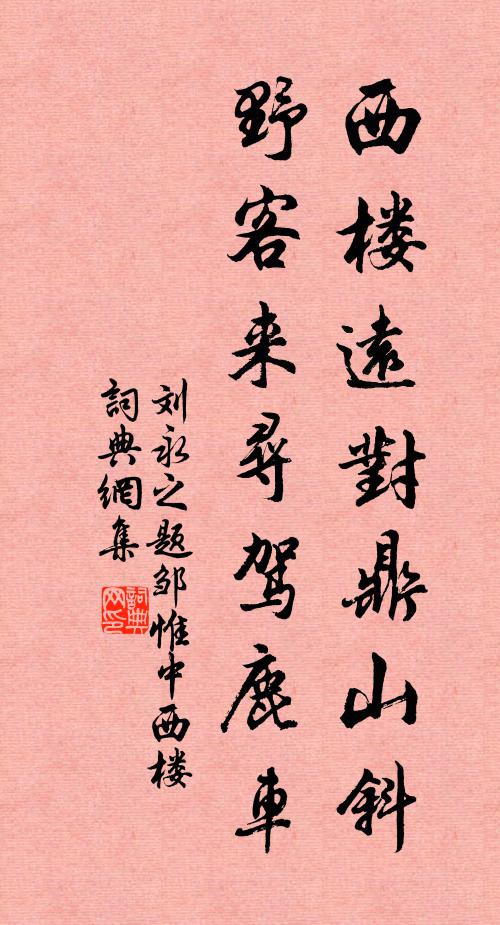 西楼遠對鼎山斜
野客来尋駕鹿車
刘永之题邹惟中西楼
詞典網集
詞典网印